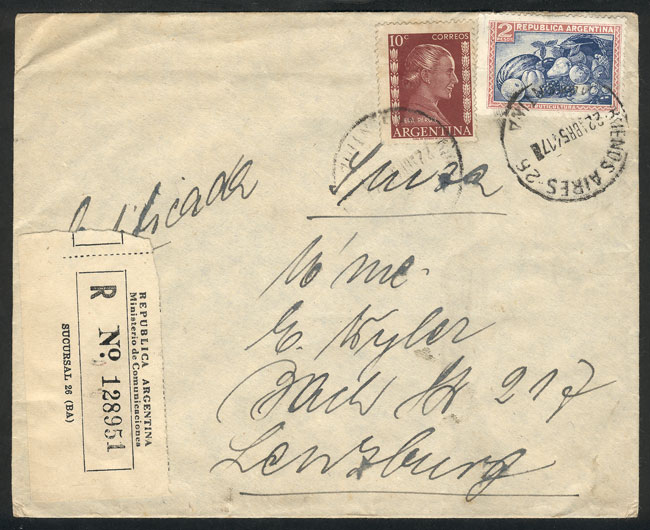 10c CORREOS
EVA PERON
ARGENTINA
2 PESOS
REPUBLICA ARGENTINA
FRUTICULTURA
BUENOS AIRES 25
22 ABR 54 17
Certificada
Suiza
Mme.
E. Wyler
Bach Str 217
Lenzburg
REPUBLICA ARGENTINA
Ministerio de Comunicaciones
R No. 128951
SUCURSAL 26 (BA)